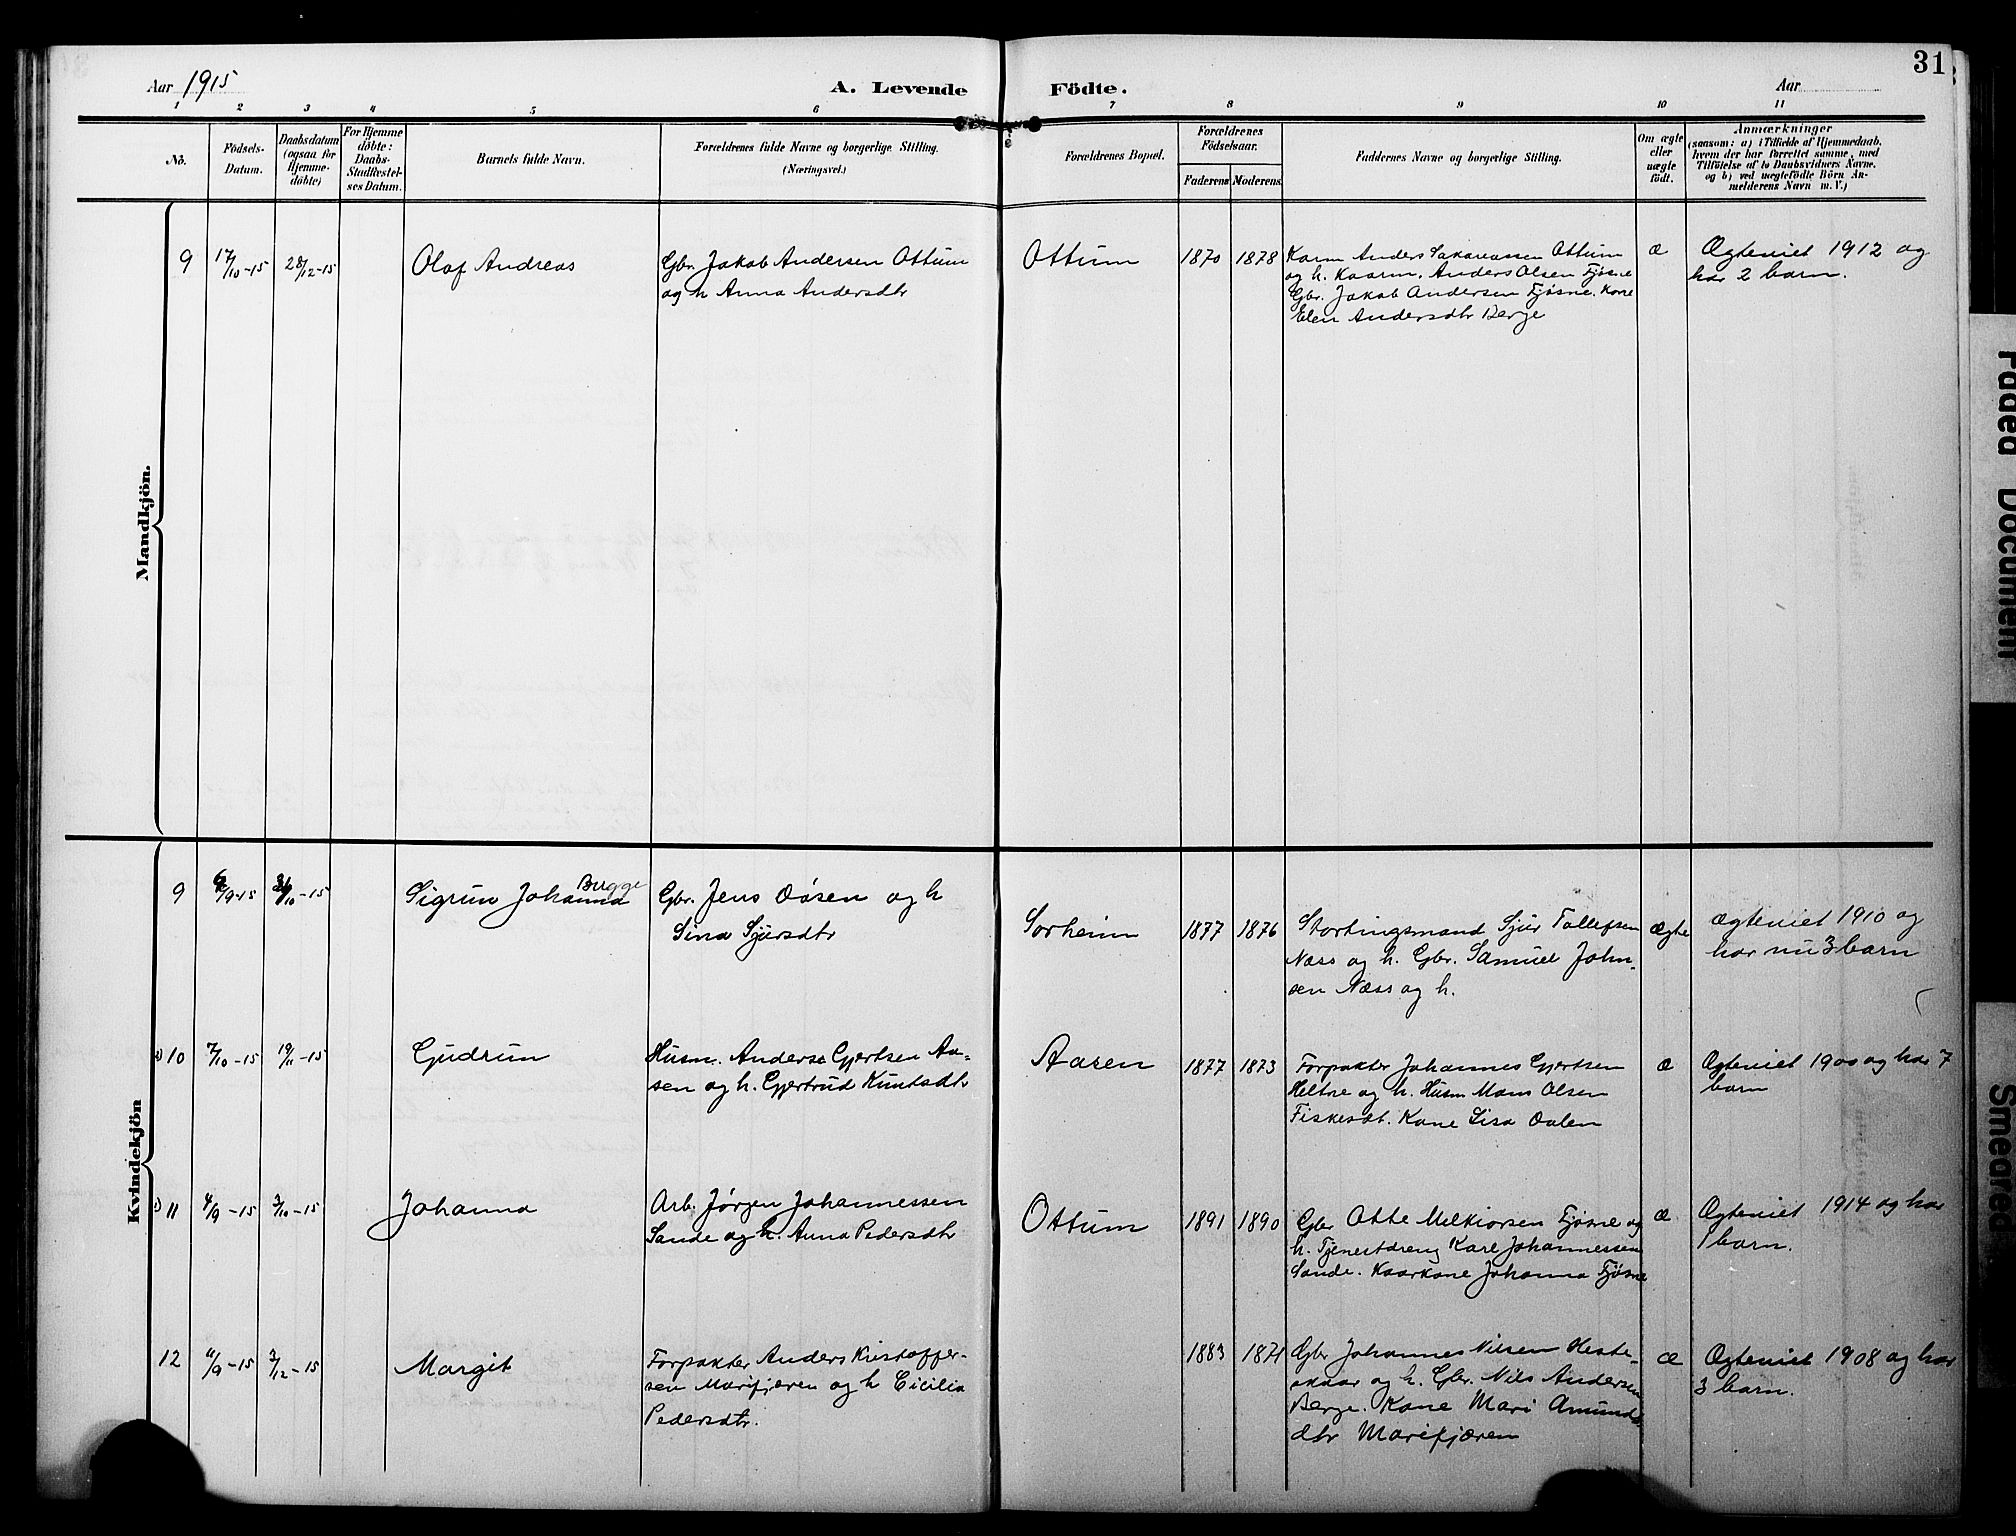 Aar 1915
A. Levende Födte.
Aar
31
1 2 3 4 5 6 7 8 9 10 11
No.
Födsels-
Datum.
Daabsdatum
(ogsaa for
Hjemme-
döbte)
For Hjemme
döbte:
Daabs-
Stadfestel-
ses Datum.
Barnets fulde Navn.
Forældrenes fulde Navne og borgerlige Stilling.
(Næringsvei.)
Forældrenes Bopæl.
Forældrenes
Födselsaar.
Faderens Moderens
Faddernes Navne og borgerlige Stilling.
Om ægte
eller
uægte
födt.
Anmærkninger
(saasom: a) i Tilfælde af Hjemmedaab,
hvem der har forrettet samme, med
Tilföielse af to Daabsvidners Navne.
og b) ved uægtefödte Börn An-
melderens Navn m. V.)
Mandkjön.
9 17/10-15 28/12-15 Olaf Andreas
Gbr. Jakob Andersen Ottum
og h Anna Andersdtr
Ottum 1870 1878
Karm Anders Sakariassen Ottum
og h. Kaarm. Anders Olsen Fjøsne
Gbr. Jakob Andersen Fjøsne. Kone
Elen Andersdtr Berge
æ
Ægteviet 1912 og
har 2 barn.
Kvindekjön
9 /9-15 /10-15 Sigrun Johanna Bugge
Gbr. Jens Oösen og h
Sina Sjursdtr
Sorheim 1877 1876
Stortingsmand Sjur Tollefsen
Næss og h. Gbr. Samuel John-
sen Næss og h.
Ægte
Ægteviet 1910 og
har nu 3 barn
10 7/10-15 19/11-15 Gudrun
Husm. Anders Gjertsen Aa-
sen og h. Gjertrud Knutsdtr
Aasen 1877 1873
Forpakter Johannes Gjertsen
Heltne og h. Husm Mons Olsen
Fiskesdt. Kone Lisa Dalen
æ
Ægteviet 1900 og har 7
barn
11 4/9-15 3/10-15 Johanna
Arb. Jørgen Johannessen
Sande og h. Anna Pedersdtr
Ottum 1891 1890
Gbr Otte Melkiorsen Fjøsne og
h. Tjenestdreng Karl Johannessen
Sande. Kaarkone Johanna Fjøsne
æ
Ægteviet 1914 og har
1 barn.
12 11/9-15 3/12-15 Margit
Forpakter Anders Kristoffer-
sen Marifjæren og h Cicilia
Pedersdtr.
1883 1871
Gbr Johannes Nilsen Heste-
skaar og h. Gbr. Nils Andersen
Berge. Kone Mari Amunds
dtr Marifjæren
æ
Ægteviet 1908 og har
3 barn.
Faded Document
Smeared